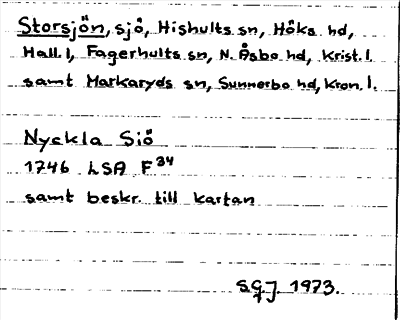 Storsjön, sjö, Hishults sn, Höks hd,
Hall. l, Fagerhults sn, N. Åsbo hd, Krist. l.
samt Markaryds sn, Sunnerbo hd, Kron. l.
Nyckla Siö
1746 LSA F³⁴
samt beskr. till kartan
SGJ. 1973.